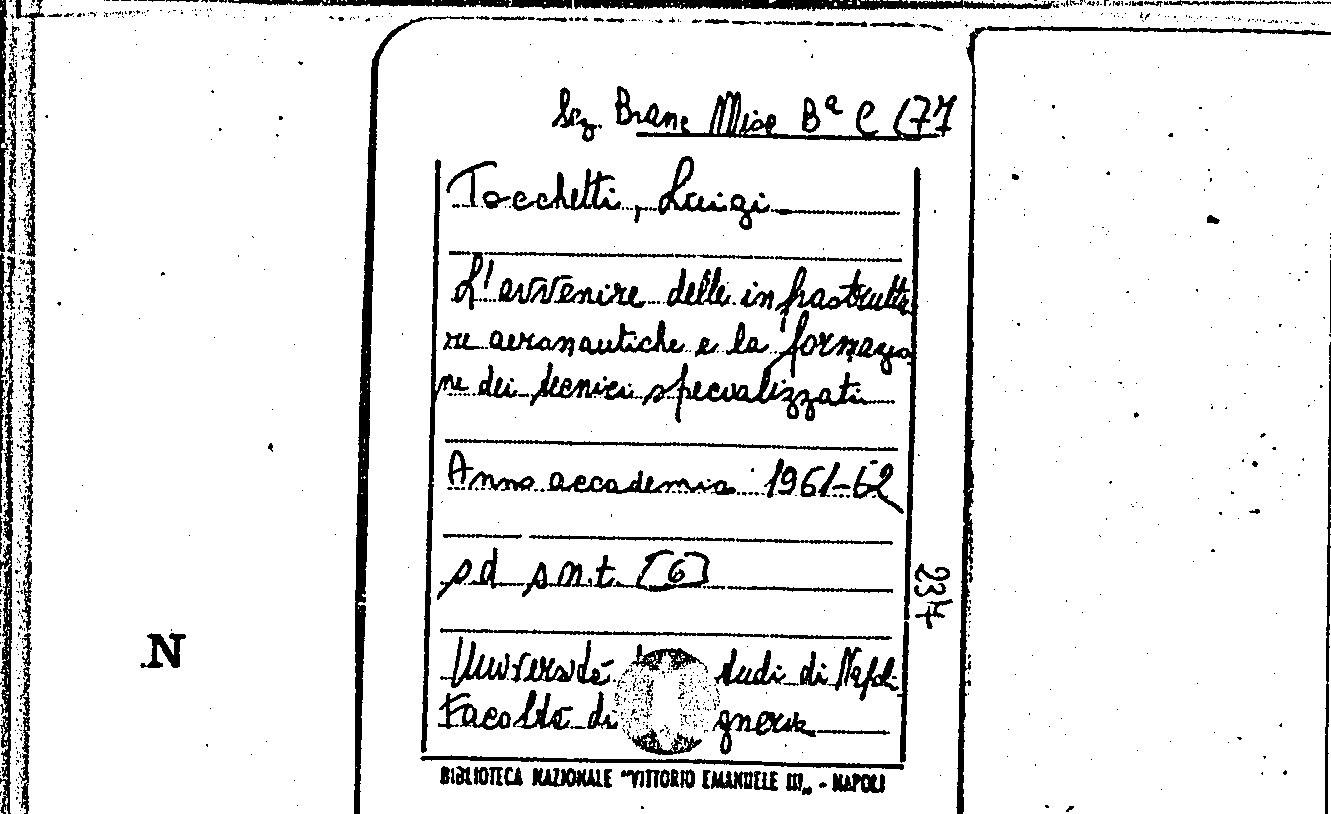 Sez. Branc Misc Bª C (77
Tocchetti, Luigi
L'avvenire delle infrastruttu
re aeronautiche e la formazio
ne dei tecnici specializzati
Anno accademia 1961-62
s.d s.n.t. [6]
234
N
Università tudi di Napoli
Facoltà di gneria
BIBLIOTECA NAZIONALE "VITTORIO EMANUELE III„ - NAPOLI